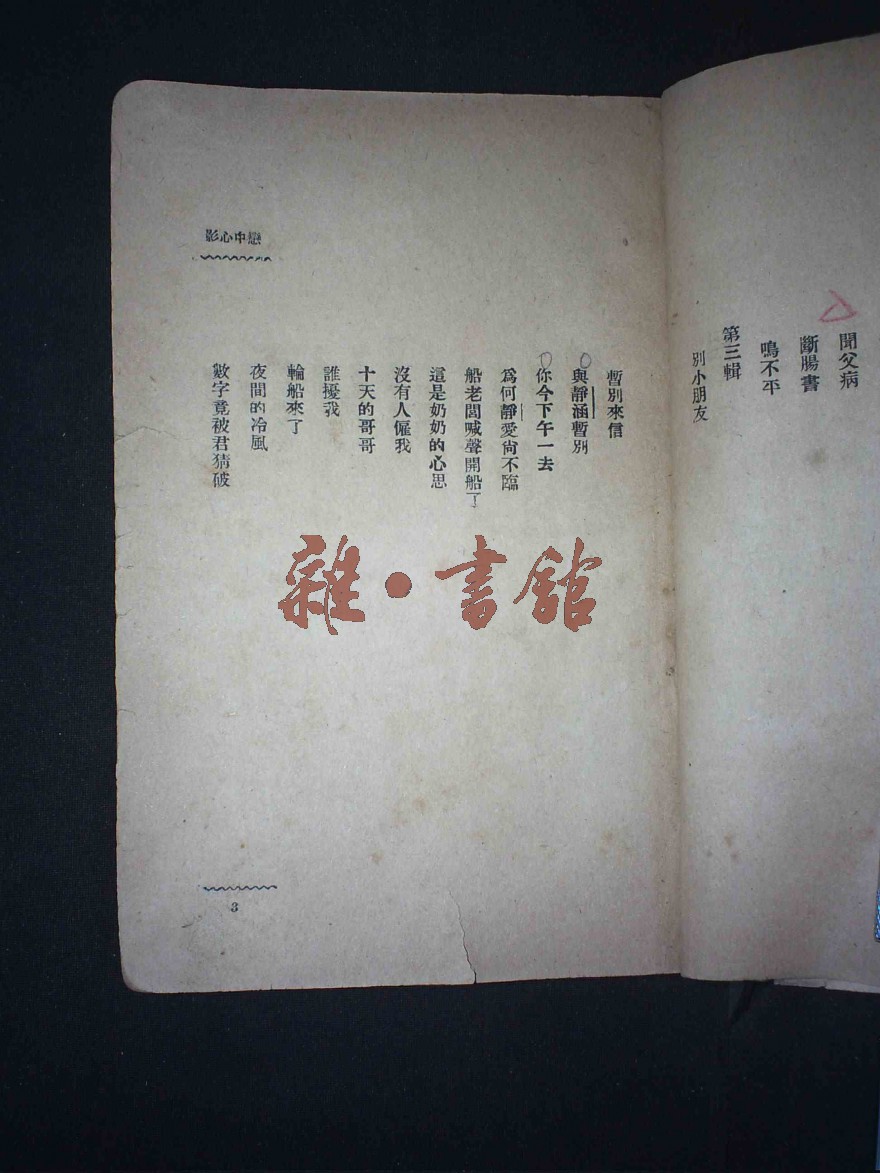 聞父病
斷腸書
鳴不平
第三輯
別小朋友
暫別來信
與靜涵暫別
你今下午一去
爲何靜愛尙不臨
船老闆喊聲開船了
這是奶奶的心思
沒有人僱我
十天的哥哥
誰擾我
輪船來了
夜間的冷風
數字竟被君猜破
影心中戀
3
雜·書館